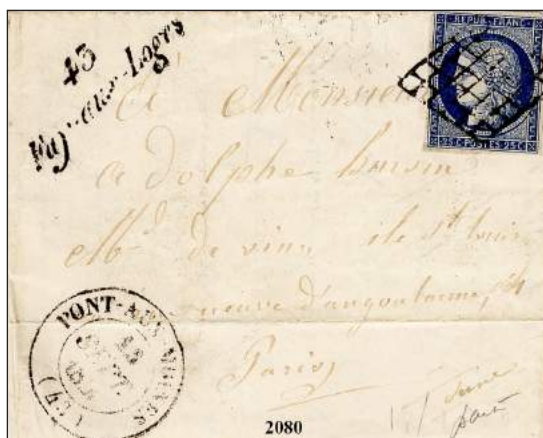 43
Fay-aux-Loges
REPUB. FRANC.
25 C POSTES 25 C
à Monsieur
adolphe
Md de vins ile st Louis
neuve d'angoulaime,
Paris
PONT-AUX-MOINES
SEPT.
(43)
2080